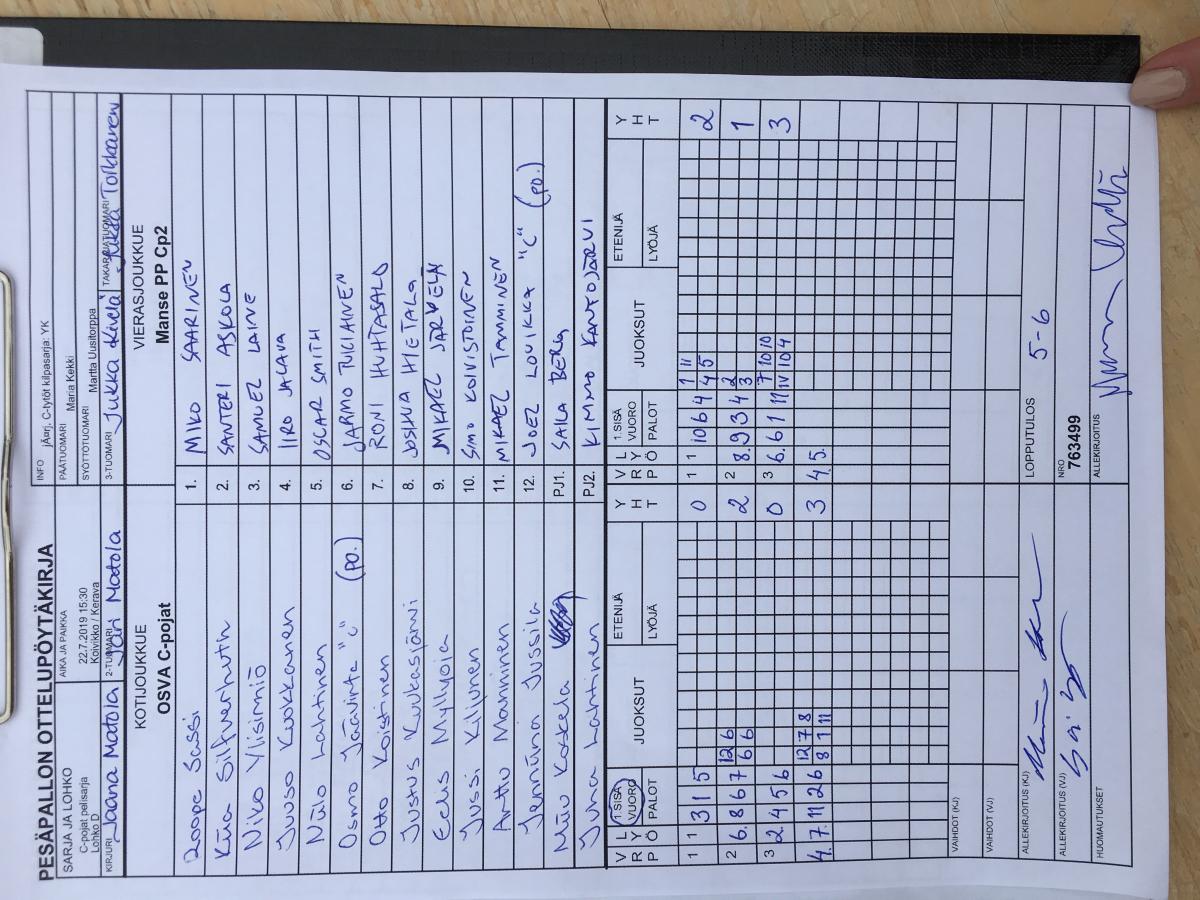 PESÄPALLON OTTELUPÖYTÄKIRJA
INFO jÄarj, C-tytöt kilpasarja: YK
SARJA JA LOHKO
C-pojat pelisarja
Lohko D
AIKA JA PAIKKA
22.7.2019 15:30
Koivikko / Kerava
PÄÄTUOMARI Maria Kekki
SYÖTTÖTUOMARI Martta Uusitorppa
KIRJURI Jaana Matola
2-TUOMARI Jari Matola
3-TUOMARI Jukka Kivelä
TAKARAJATUOMARI Jukka Torkkanen
KOTIJOUKKUE
OSVA C-pojat
VIERASJOUKKUE
Manse PP Cp2
Roope Sassi 1. MIKO SAARINEN
Kiia Silfverhuth 2. SANTERI ASKOLA
Niko Ylisirniö 3. SAMUEL LAINE
Juuso Kuokkanen 4. IIRO JALAVA
Niilo Lahtinen 5. OSCAR SMITH
Osmo Jäävirta "C" (po.) 6. JARMO TUKIAINEN
Otto Koistinen 7. RONI HUHTASALO
Justus Kuukasjärvi 8. JOSHUA HIETALA
Eelis Myllyoja 9. MIKAEL JÄRVELÄ
Jussi Kiljunen 10. SIMO KOIVISTOINEN
Arttu Manninen 11. MIKAEL TAMMINEN
Jenniina Jussila 12. JOEL LOVIKKA "C" (po.)
Niilo Koskela PJ1. SAILA BERG
Juha Lahtinen PJ2. KIMMO KANTOJÄRVI
V R P L Y Ö 1.SISÄ VUORO PALOT JUOKSUT ETENIJÄ LYÖJÄ Y H T
V R P L Y Ö 1.SISÄ VUORO PALOT JUOKSUT ETENIJÄ LYÖJÄ Y H T
1 1 3 1 5 0
1 1 10 6 4 1 11 4 5 2
2 6. 8 6 7 12 6 6 6 2
2 8. 9 3 4 2 3 1
3 2. 4 5 6 0
3 6. 6 1 11 7 10 10 11 10 4 3
4. 7. 11 2 6 12 7 8 8 1 11 3
4. 5.
VAIHDOT (KJ)
VAIHDOT (VJ)
ALLEKIRJOITUS (KJ)
LOPPUTULOS 5-6
ALLEKIRJOITUS (VJ)
NRO
763499
HUOMAUTUKSET
ALLEKIRJOITUS